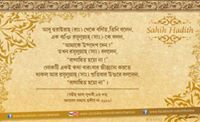 Sahih Hadith
আবু হুরাইরাহ (রাঃ) থেকে বর্ণিত, তিনি বলেন,
এক ব্যক্তি রাসূলুল্লাহ (সাঃ) কে বলল,
"আমাকে উপদেশ দেন।"
তখন রাসূলুল্লাহ (সাঃ) বললেন,
"রাগান্বিত হয়ো না"।
লোকটি একই কথা বারংবার জিজ্ঞাসা করতে
থাকল আর রাসূলুল্লাহ (সাঃ) প্রতিবার উত্তরে বললেন,
"রাগান্বিত হয়ো না"।